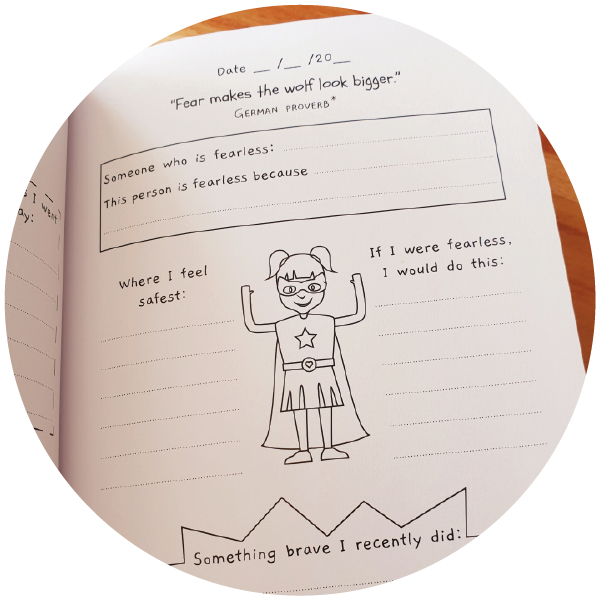 Date __ /__ /20__
"Fear makes the wolf look bigger."
GERMAN PROVERB*
Someone who is fearless:
This person is fearless because
Where I feel
safest:
If I were fearless,
I would do this:
Something brave I recently did: